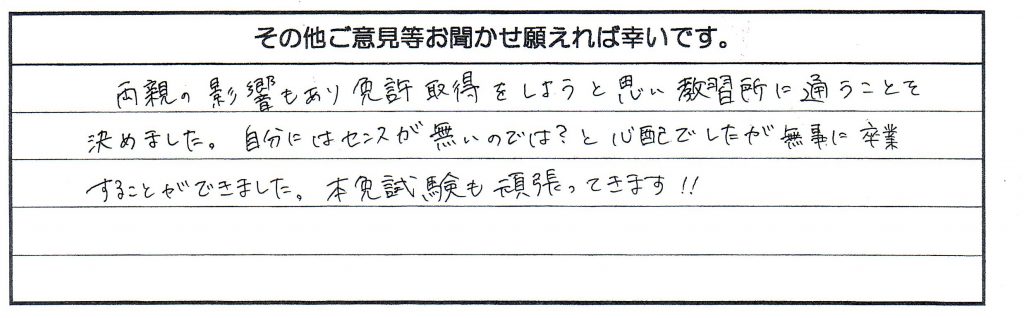 その他ご意見等お聞かせ願えれば幸いです。
両親の影響もあり免許取得をしようと思い教習所に通うことを
決めました。自分にはセンスが無いのでは？と心配でしたが無事に卒業
することができました。本免試験も頑張ってきます!!